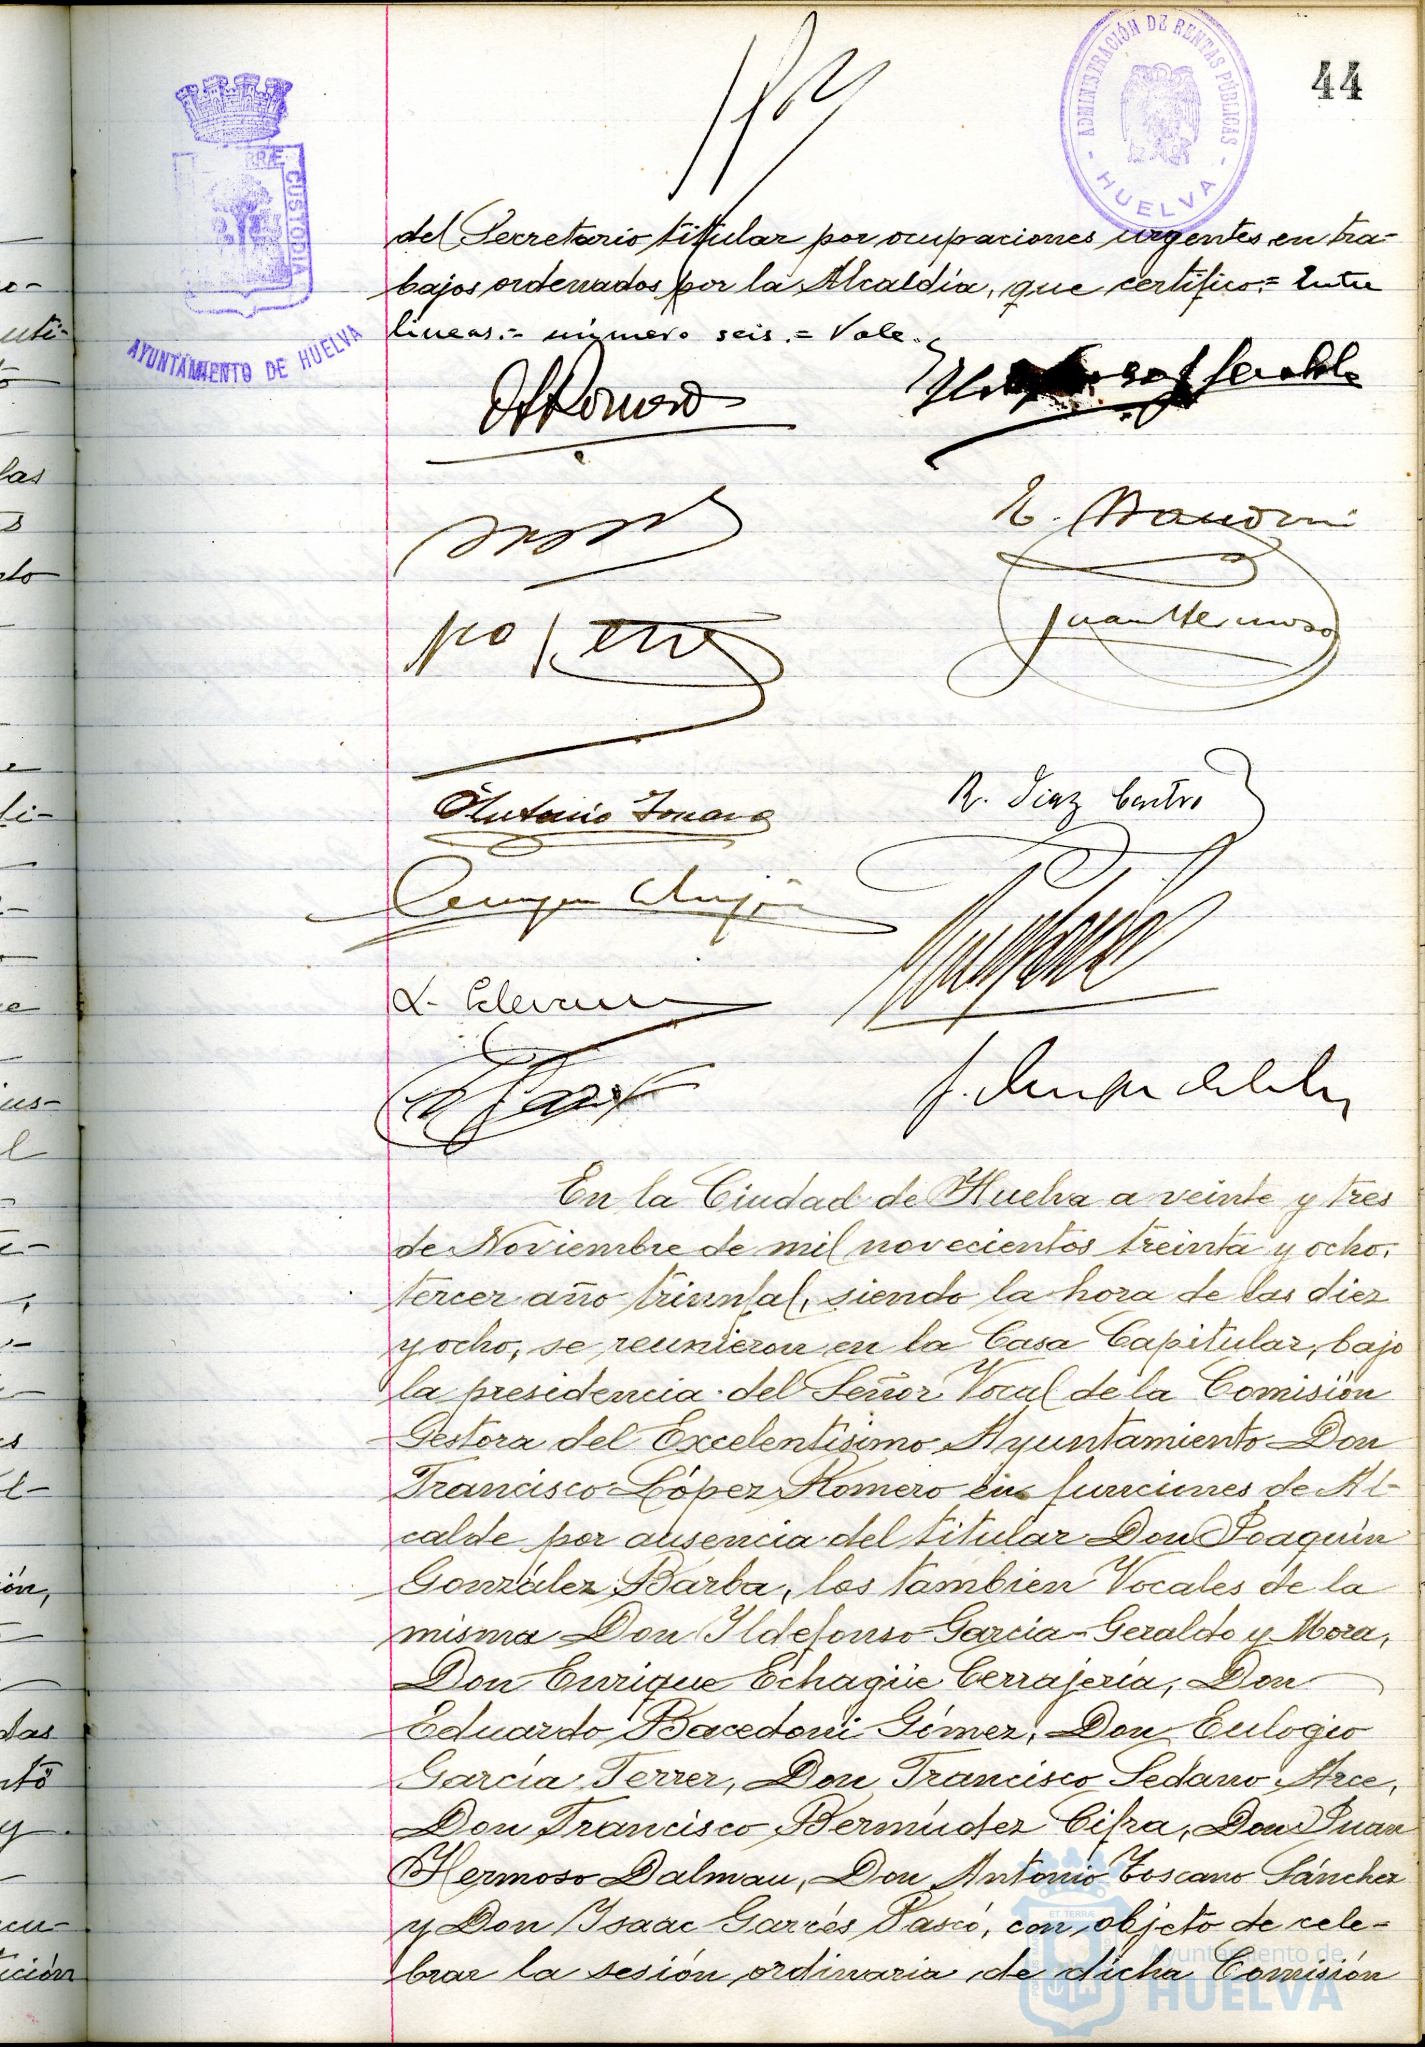 44
ADMINISTRACIÓN DE RENTAS PÚBLICAS
HUELVA
CUSTODIA
AYUNTAMIENTO DE HUELVA
del Secretario titular por ocupaciones urgentes en tra-
bajos ordenados por la Alcaldía, que certifico.= Entre
lineas.= número seis.= Vale.
Juan Hermoso
Antonio Toscano
R. Díaz Castro
En la Ciudad de Huelva a veinte y tres
de Noviembre de mil novecientos treinta y ocho,
tercer año triunfal, siendo la hora de las diez
y ocho, se reunieron en la Casa Capitular, bajo
la presidencia del Señor Vocal de la Comisión
Gestora del Excelentísimo Ayuntamiento Don
Francisco López Romero en funciones de Al-
calde por ausencia del titular Don Joaquín
González Barba, los tambien Vocales de la
misma Don Ildefonso Garcia-Geraldo y Mora,
Don Enrique Echagüe Cerrajería, Don
Eduardo Bacedoni Gómez, Don Eulogio
García Ferrer, Don Francisco Sedano Arce,
Don Francisco Bermúdez Cifra, Don Juan
Hermoso Dalmau, Don Antonio Toscano Sánchez
y Don Isaac Garcés Pascó, con objeto de cele-
brar la sesión ordinaria de dicha Comisión
Ayuntamiento de
HUELVA